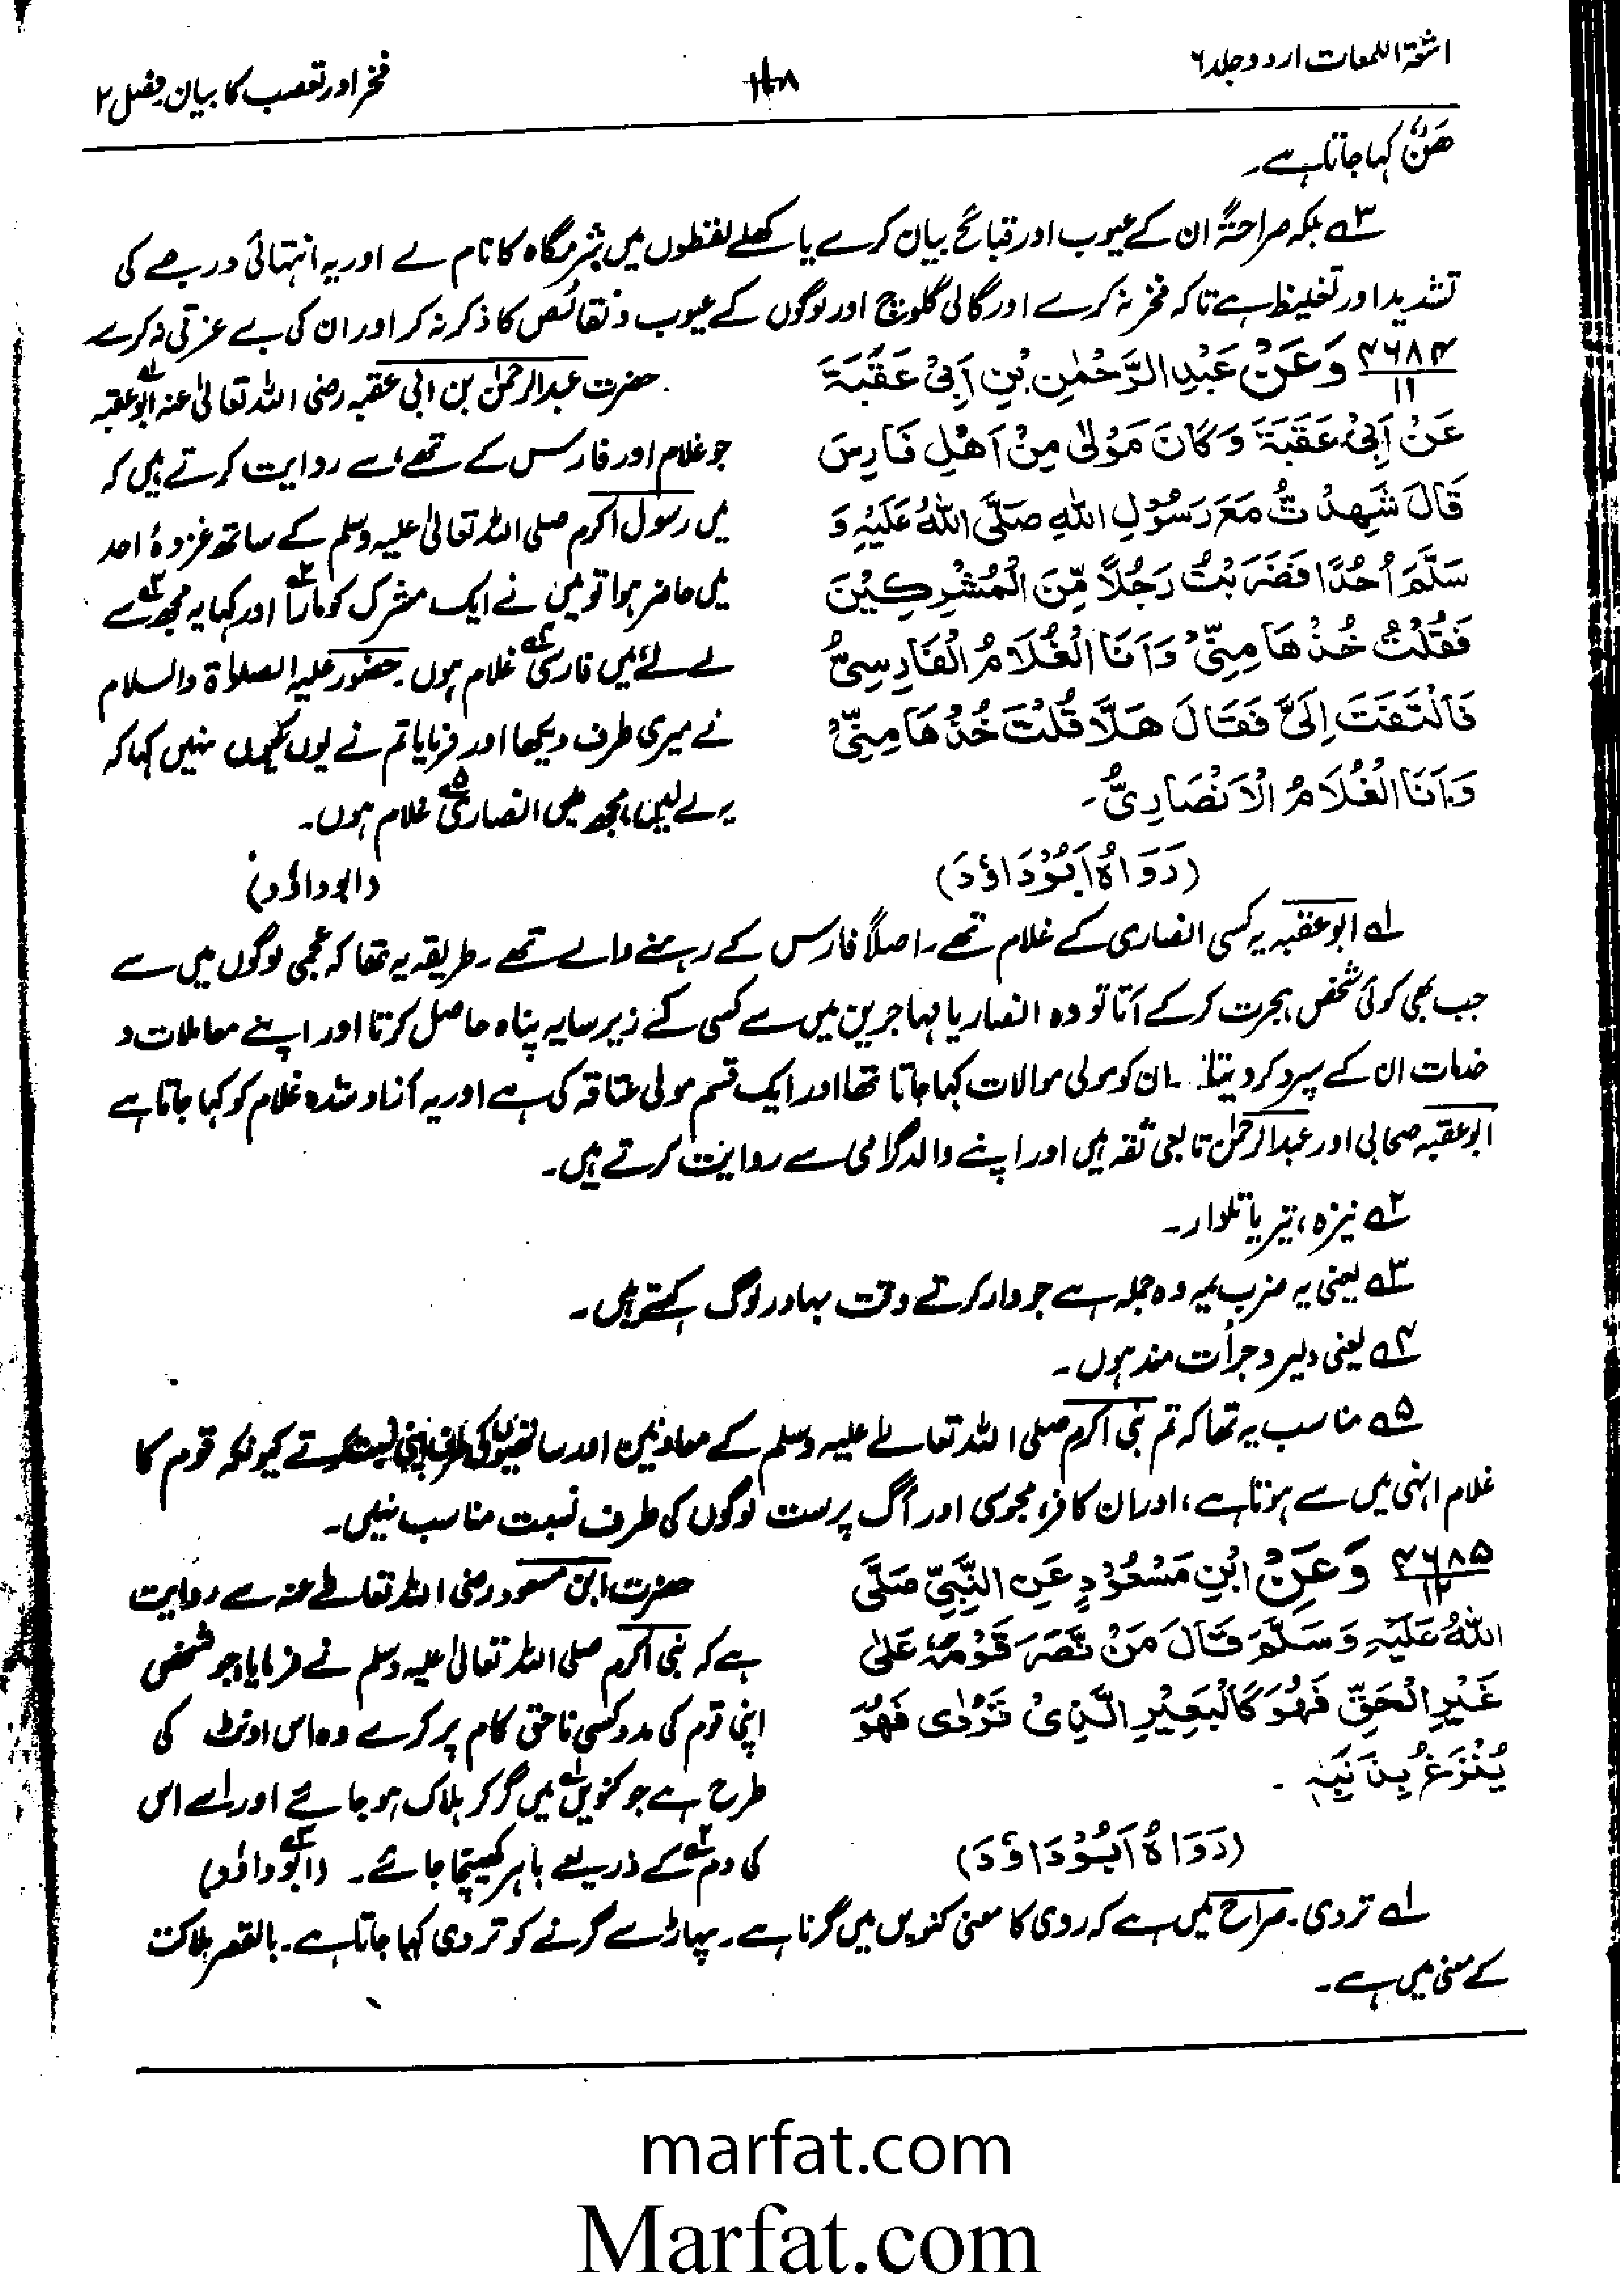 اشعۃ اللمعات اردو جلد ۶
فخر اور تعصب کا بیان فصل ۲
ھَنٌ کہا جاتا ہے۔
۳ے بلکہ صراحۃً ان کے عیوب اور قبائح بیان کرے یا کھلے لفظوں میں شرمگاہ کا نام لے اور یہ انتہائی درجے کی
تشدید اور تغلیظ ہے تاکہ فخر نہ کرے اور گالی گلوچ اور لوگوں کے عیوب و نقائص کا ذکر نہ کر اور ان کی بے عزتی نہ کرے
۴۶۸۴/۱۱ وَعَنْ عَبْدِ الرَّحْمٰنِ بْنِ اَبِیْ عَقَبَۃَ
عَنْ اَبِیْ عَقَبَۃَ وَکَانَ مَوْلٰی مِنْ اَهْلِ فَارِسَ
قَالَ شَهِدْتُّ مَعَ رَسُوْلِ اللهِ صَلَّی اللهُ عَلَیْهِ وَ
سَلَّمَ اُحُدًا فَضَرَبْتُ رَجُلًا مِّنَ الْمُشْرِکِیْنَ
فَقُلْتُ خُذْهَا مِنِّیْ وَاَنَا الْغُلَامُ الْفَارِسِیُّ
فَالْتَفَتَ اِلَیَّ فَقَالَ هَلَّا قُلْتَ خُذْهَا مِنِّیْ
وَاَنَا الْغُلَامُ الْاَنْصَارِیُّ۔
(رَوَاهُ اَبُوْدَاوٗدَ)
حضرت عبدالرحمٰن بن ابی عقبہ رضی اللہ تعالیٰ عنہ ابوعقبہ۱ے
جو غلام اور فارس کے تھے، سے روایت کرتے ہیں کہ
میں رسول اکرم صلی اللہ تعالیٰ علیہ وسلم کے ساتھ غزوۂ احد
میں حاضر ہوا تو میں نے ایک مشرک کو مارا۲ے اور کہا یہ مجھ۳ے سے
لے لے میں فارسی۴ے غلام ہوں۔ حضور علیہ الصلاۃ والسلام
نے میری طرف دیکھا اور فرمایا تم نے یوں کیوں نہیں کہا کہ
یہ لے لیں، مجھ میں انصاری۵ے غلام ہوں۔
(ابوداؤد)
۱ے ابوعقبہ یہ کسی انصاری کے غلام تھے۔ اصلاً فارس کے رہنے والے تھے۔ طریقہ یہ تھا کہ عجمی لوگوں میں سے
جب بھی کوئی شخص ہجرت کرکے آتا تو وہ انصار یا مہاجرین میں سے کسی کے زیر سایہ پناہ حاصل کرتا اور اپنے معاملات و
خدمات ان کے سپرد کر دیتا۔ ان کو مولی موالات کہا جاتا تھا اور ایک قسم مولی عتاقہ کی ہے اور یہ آزاد شدہ غلام کو کہا جاتا ہے
ابوعقبہ صحابی اور عبدالرحمٰن تابعی ثقہ ہیں اور اپنے والد گرامی سے روایت کرتے ہیں۔
۲ے نیزہ، تیر یا تلوار۔
۳ے یعنی یہ ضرب یہ وہ جملہ ہے جو وار کرتے وقت بہادر لوگ کہتے ہیں۔
۴ے یعنی دلیر و جرأت مند ہوں۔
۵ے مناسب یہ تھا کہ تم نبی اکرم صلی اللہ تعالےٰ علیہ وسلم کے معاونین اور ساتھیوں کی طرف اپنی نسبت کرتے کیونکہ قوم کا
غلام انہی میں سے ہوتا ہے، اور ان کافر، مجوسی اور آگ پرست لوگوں کی طرف نسبت مناسب نہیں۔
۴۶۸۵/۱۲ وَعَنْ ابْنِ مَسْعُوْدٍ عَنِ النَّبِیِّ صَلَّی
اللهُ عَلَیْهِ وَسَلَّمَ قَالَ مَنْ نَّصَرَ قَوْمَهٗ عَلٰی
غَیْرِ الْحَقِّ فَهُوَ کَالْبَعِیْرِ الَّذِیْ تَرَدّٰی فَهُوَ
یُنْزَعُ بِذَنَبِهٖ۔
(رَوَاهُ اَبُوْدَاوٗدَ)
حضرت ابن مسعود رضی اللہ تعالےٰ عنہ سے روایت
ہے کہ نبی اکرم صلی اللہ تعالیٰ علیہ وسلم نے فرمایا جو شخص
اپنی قوم کی مدد کسی ناحق کام پر کرے وہ اس اونٹ کی
طرح ہے جو کنویں۱ے میں گر کر ہلاک ہو جائے اور اسے اس
کی دم۲ے کے ذریعے باہر کھینچا جائے۔ (ابوداؤد)۳ے
۱ے تردی۔ صراح میں ہے کہ ردی کا معنی کنویں میں گرنا ہے۔ پہاڑ سے گرنے کو تردی کہا جاتا ہے۔ بالقصر ہلاکت
کے معنی میں ہے۔
marfat.com
Marfat.com